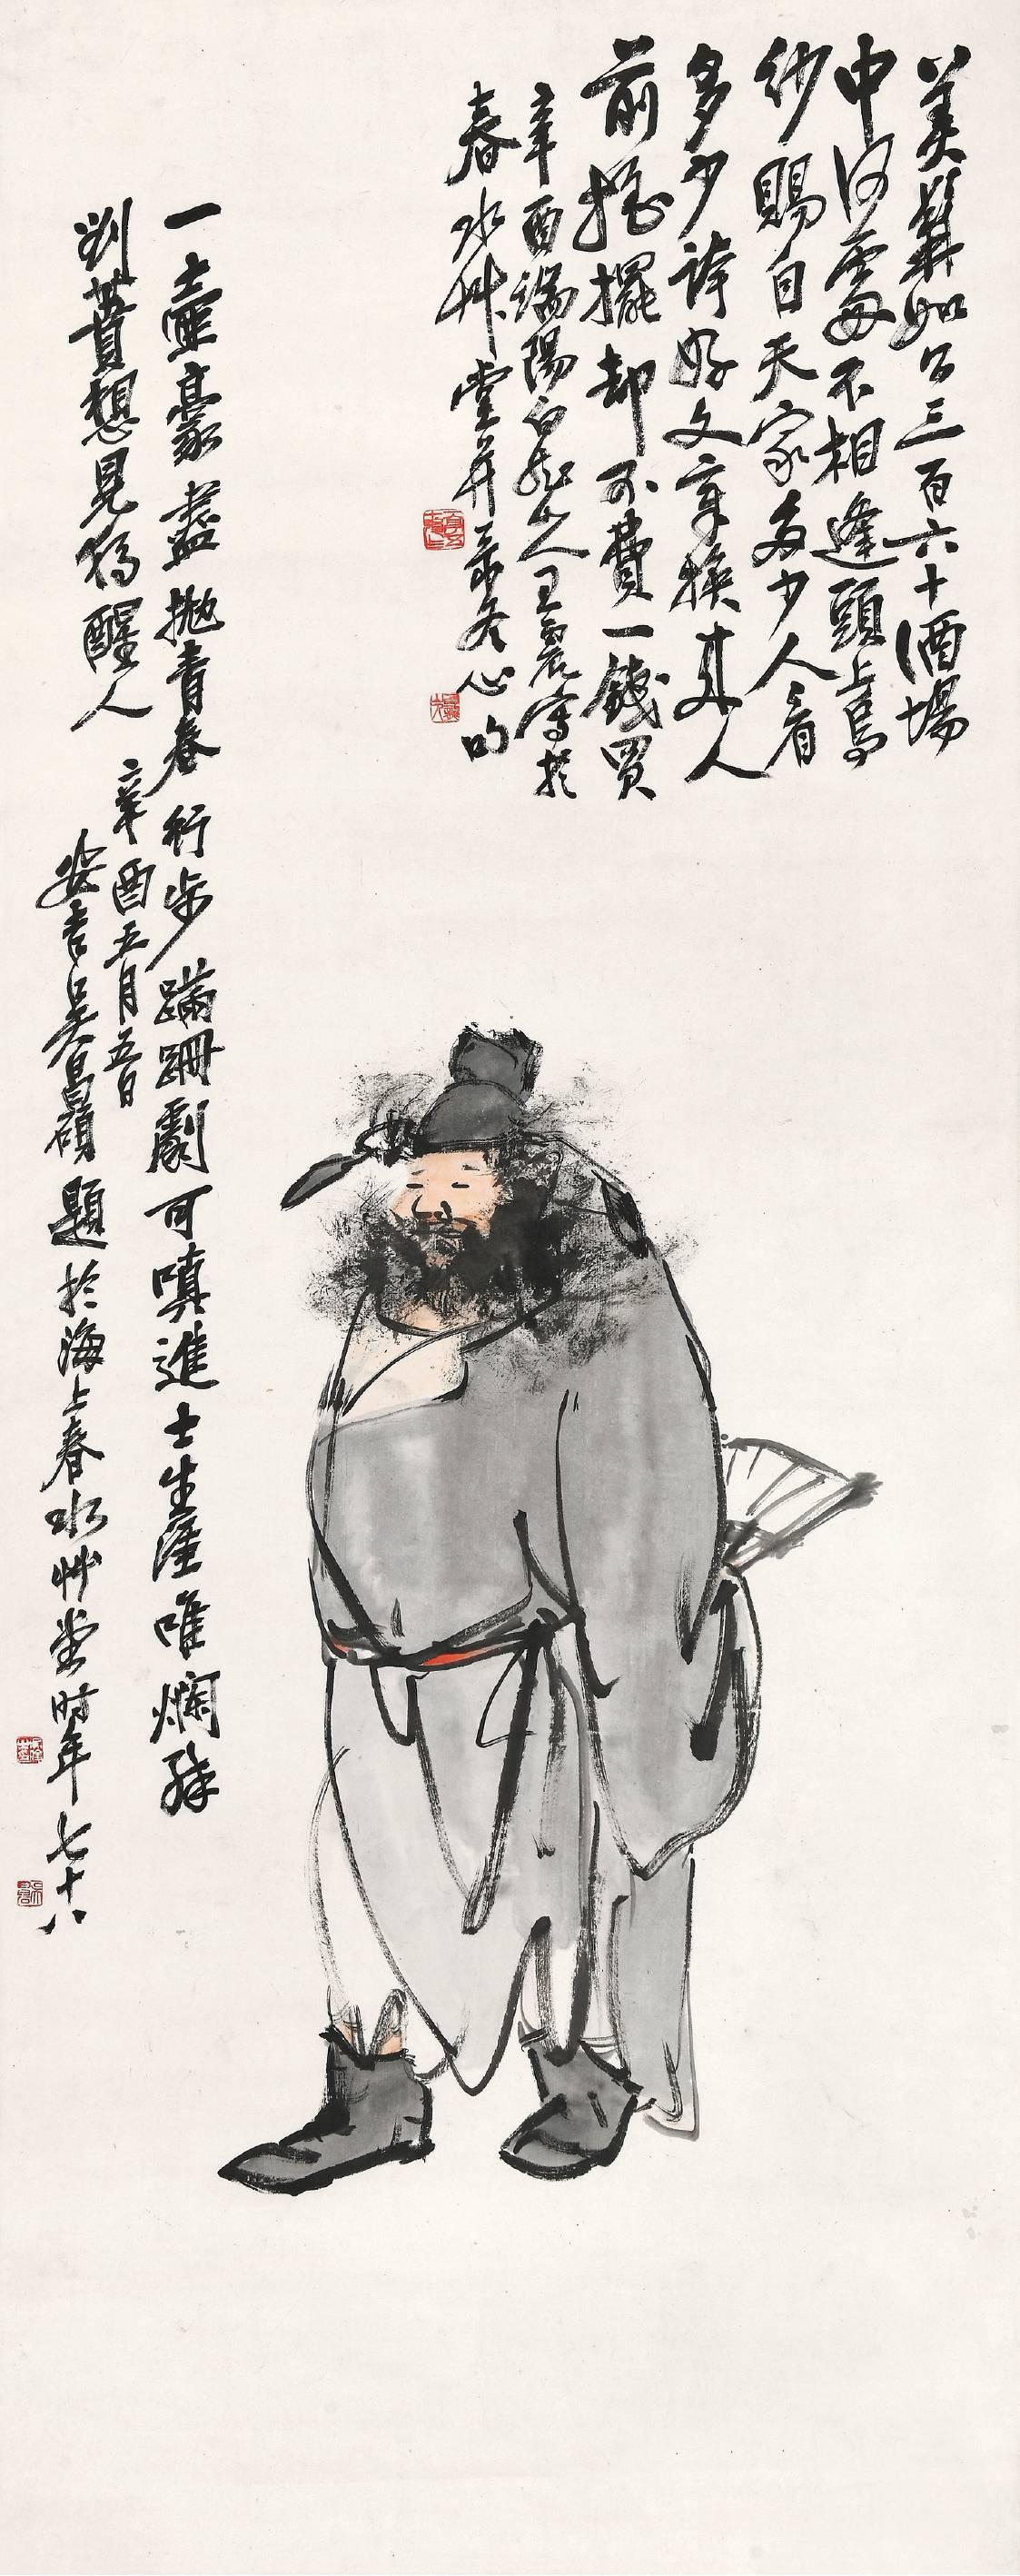 美髯如公三百六十酒場
中何處不相逢頭上烏
紗賜自天家多少人看
多少詩好文章換來人
前搖擺却不費一錢買
辛酉端陽白龍山人王震寫於
春水艸堂并录冬心句
一壺豪盡拋青春行步蹣跚劇可嗔進士生涯唯爛醉
劉蕡想見獨醒人
辛酉五月五日
安吉吳昌碩題於海上春水艸堂时年七十八